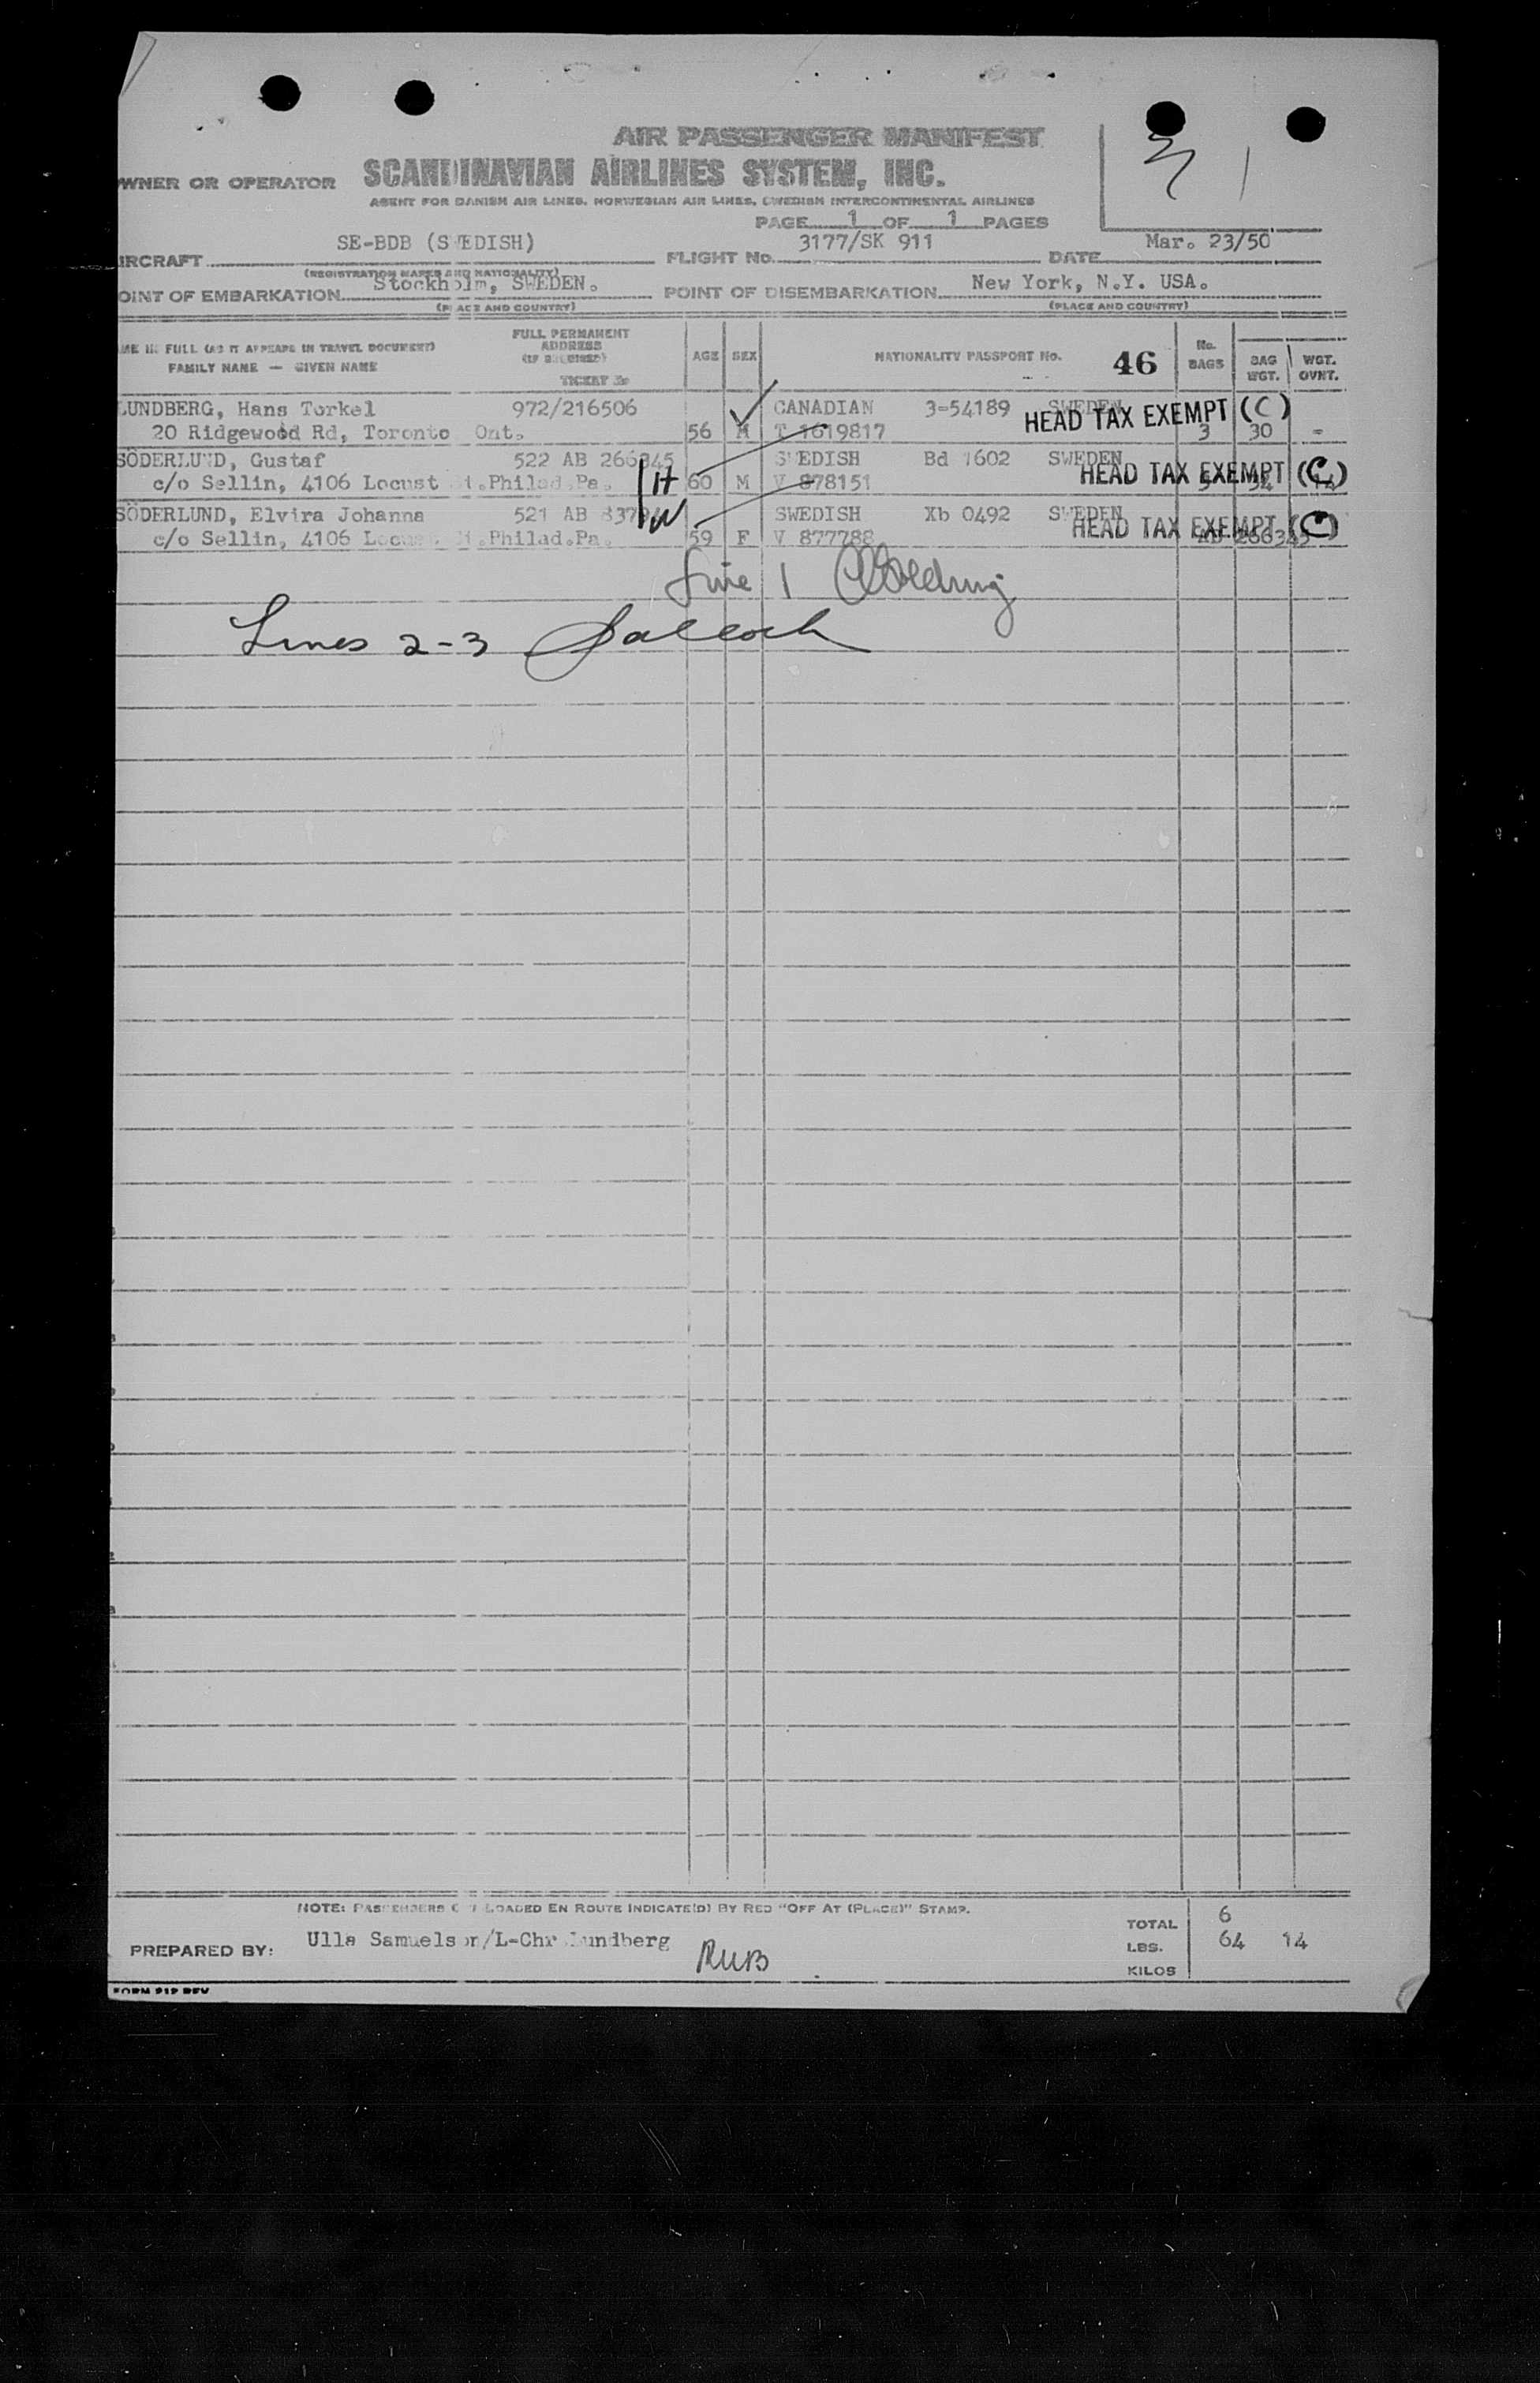 AIR PASSENGER MANIFEST
WNER OR OPERATOR SCANDINAVIAN AIRLINES SYSTEM, INC.
AGENT FOR DANISH AIR LINES, NORWEGIAN AIR LINES, SWEDISH INTERCONTINENTAL AIRLINES
PAGE 1 OF 1 PAGES
IRCRAFT SE-BDB (SWEDISH) FLIGHT No. 3177/SK 911 DATE Mar. 23/50
(REGISTRATION MARKS AND NATIONALITY)
OINT OF EMBARKATION Stockholm, SWEDEN. POINT OF DISEMBARKATION New York, N.Y. USA.
(PLACE AND COUNTRY) (PLACE AND COUNTRY)
ME IN FULL (AS IT APPEARS IN TRAVEL DOCUMENT) FAMILY NAME — GIVEN NAME
FULL PERMANENT ADDRESS (IF REQUIRED) TICKET No
AGE SEX NATIONALITY PASSPORT No. 46 No. BAGS BAG WGT. WGT. OVWT.
LUNDBERG, Hans Torkel 972/216506 CANADIAN 3-54189 SWEDEN HEAD TAX EXEMPT (C)
20 Ridgewood Rd, Toronto Ont. 56 M T 1619817 3 30 -
SÖDERLUND, Gustaf 522 AB 266345 SWEDISH Bd 1602 SWEDEN
c/o Sellin, 4106 Locust St.Philad.Pa. H 60 M V 878151 HEAD TAX EXEMPT (C) 3 34 14
SÖDERLUND, Elvira Johanna 521 AB W SWEDISH Xb 0492 SWEDEN
c/o Sellin, 4106 Locust St.Philad.Pa. 59 F V 877788 HEAD TAX EXEMPT (C) AB 266345
Line 1
Lines 2-3
NOTE: PASSENGERS OFF-LOADED EN ROUTE INDICATE(D) BY RED "OFF AT (PLACE)" STAMP.
PREPARED BY: Ulla Samuelson/L-Chr Lundberg
TOTAL 6
LBS. 64 14
KILOS
FORM 212 REV